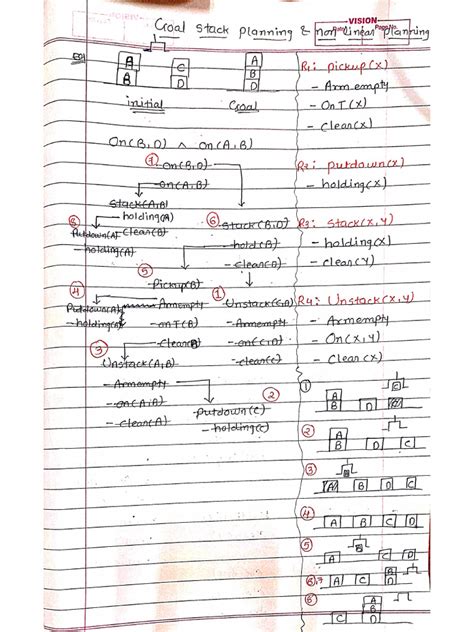 VISION
Goal stack planning & non-linear planning
Date Page No.
EO1
A
A
C
D
A
B
D
initial Goal
On(B,D) ∧ on(A,B)
R1: pickup(x)
- Arm empty
- OnT(x)
- Clear(x)
R2: putdown(x)
- holding(x)
R3: Stack(x,y)
- holding(x)
- clear(y)
R4: Unstack(x,y)
- Armempty
- On(x,y)
- Clear(x)
⑦ on(B,D)
- on(A,B)
Stack(A,B)
- holding(A)
- Clear(B)
⑧
Putdown(A)
- holding(A)
⑥ Stack(B,D)
- hold(B)
- clear(D)
⑤ Pickup(B)
- Armempty
- onT(B)
- Clear(B)
④
Putdown(A)
- holding(A)
① Unstack(C,D)
- Armempty
- on(C,D)
- clear(C)
③ Unstack(A,B)
- Armempty
- on(A,B)
- clear(A)
② Putdown(C)
- holding(C)
①
A
B D
②
A
B D C
③
A B D C
④ A B D C
⑤
A C D
⑥,⑦ A C D
⑧
A
B
C D